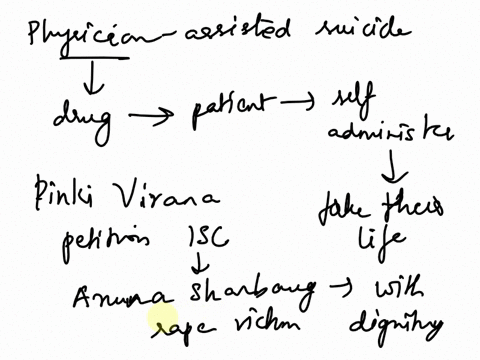 Physician-assisted suicide
drug → patient → self administer
take their life
Pinki Virana
petition ISC
Aruna Sharbaug → with dignity
rape victim